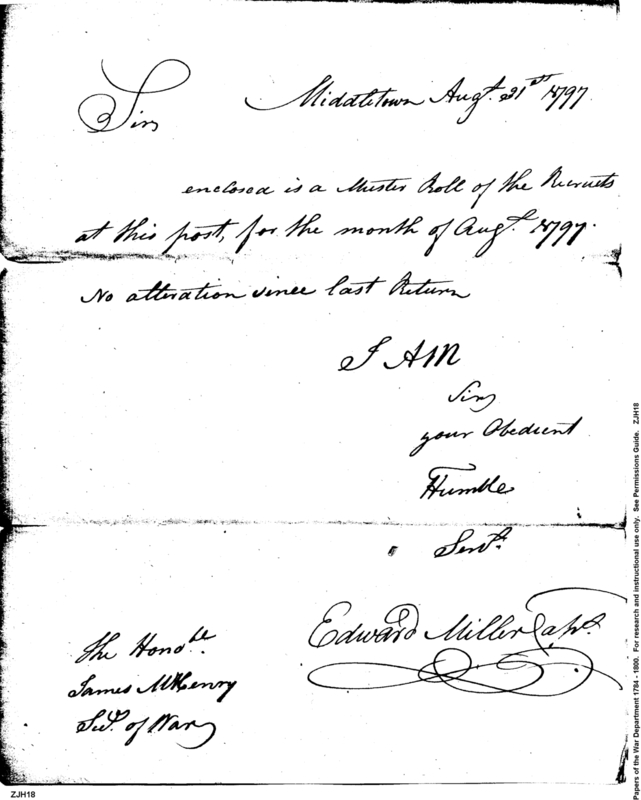 Middletown Augt. 31st 1797
Sir,
enclosed is a Muster Roll of the Recruits
at this post, for the month of Augt. 1797.
No alteration since last Return
I AM
Sir,
your Obedient
Humble
Servt.
Edward Miller Capt.
The Honoble.
James McHenry
Sec. of War
Papers of the War Department 1784 - 1800. For research and instructional use only. See Permissions Guide. ZJH18
ZJH18